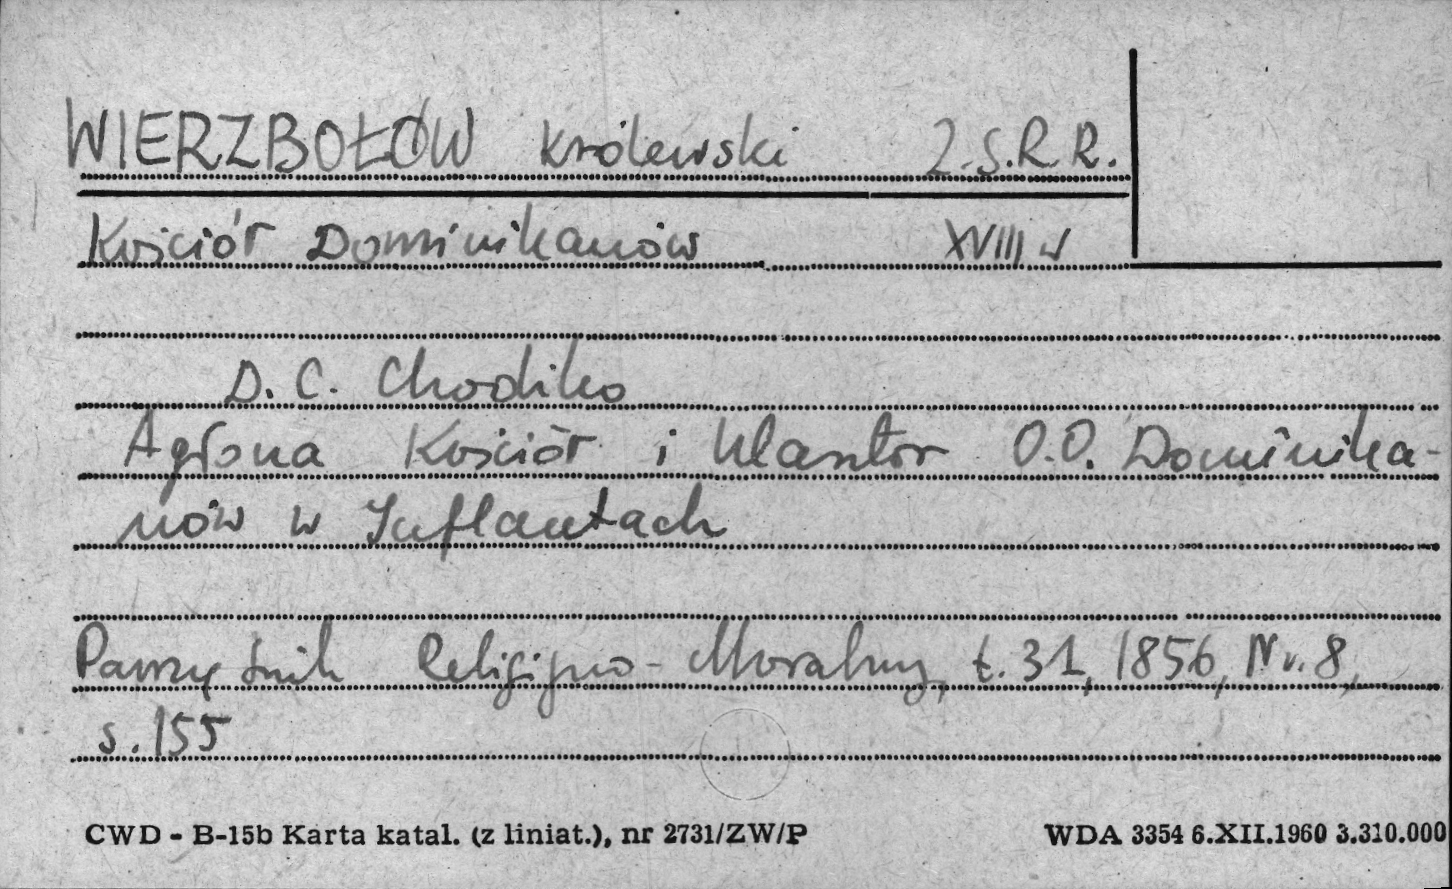 WIERZBOŁÓW Królewski Z.S.R.R.
Kościół Dominikanów XVIII w
D. C. Chodźko
Agłona Kościół i klasztor O.O. Dominika-
nów w Inflantach
Pamiętnik Religijno-Moralny, t. 31, 1856, Nr. 8,
s. 155
CWD - B-15b Karta katal. (z liniat.), nr 2731/ZW/P WDA 3354 6.XII.1960 3.310.000